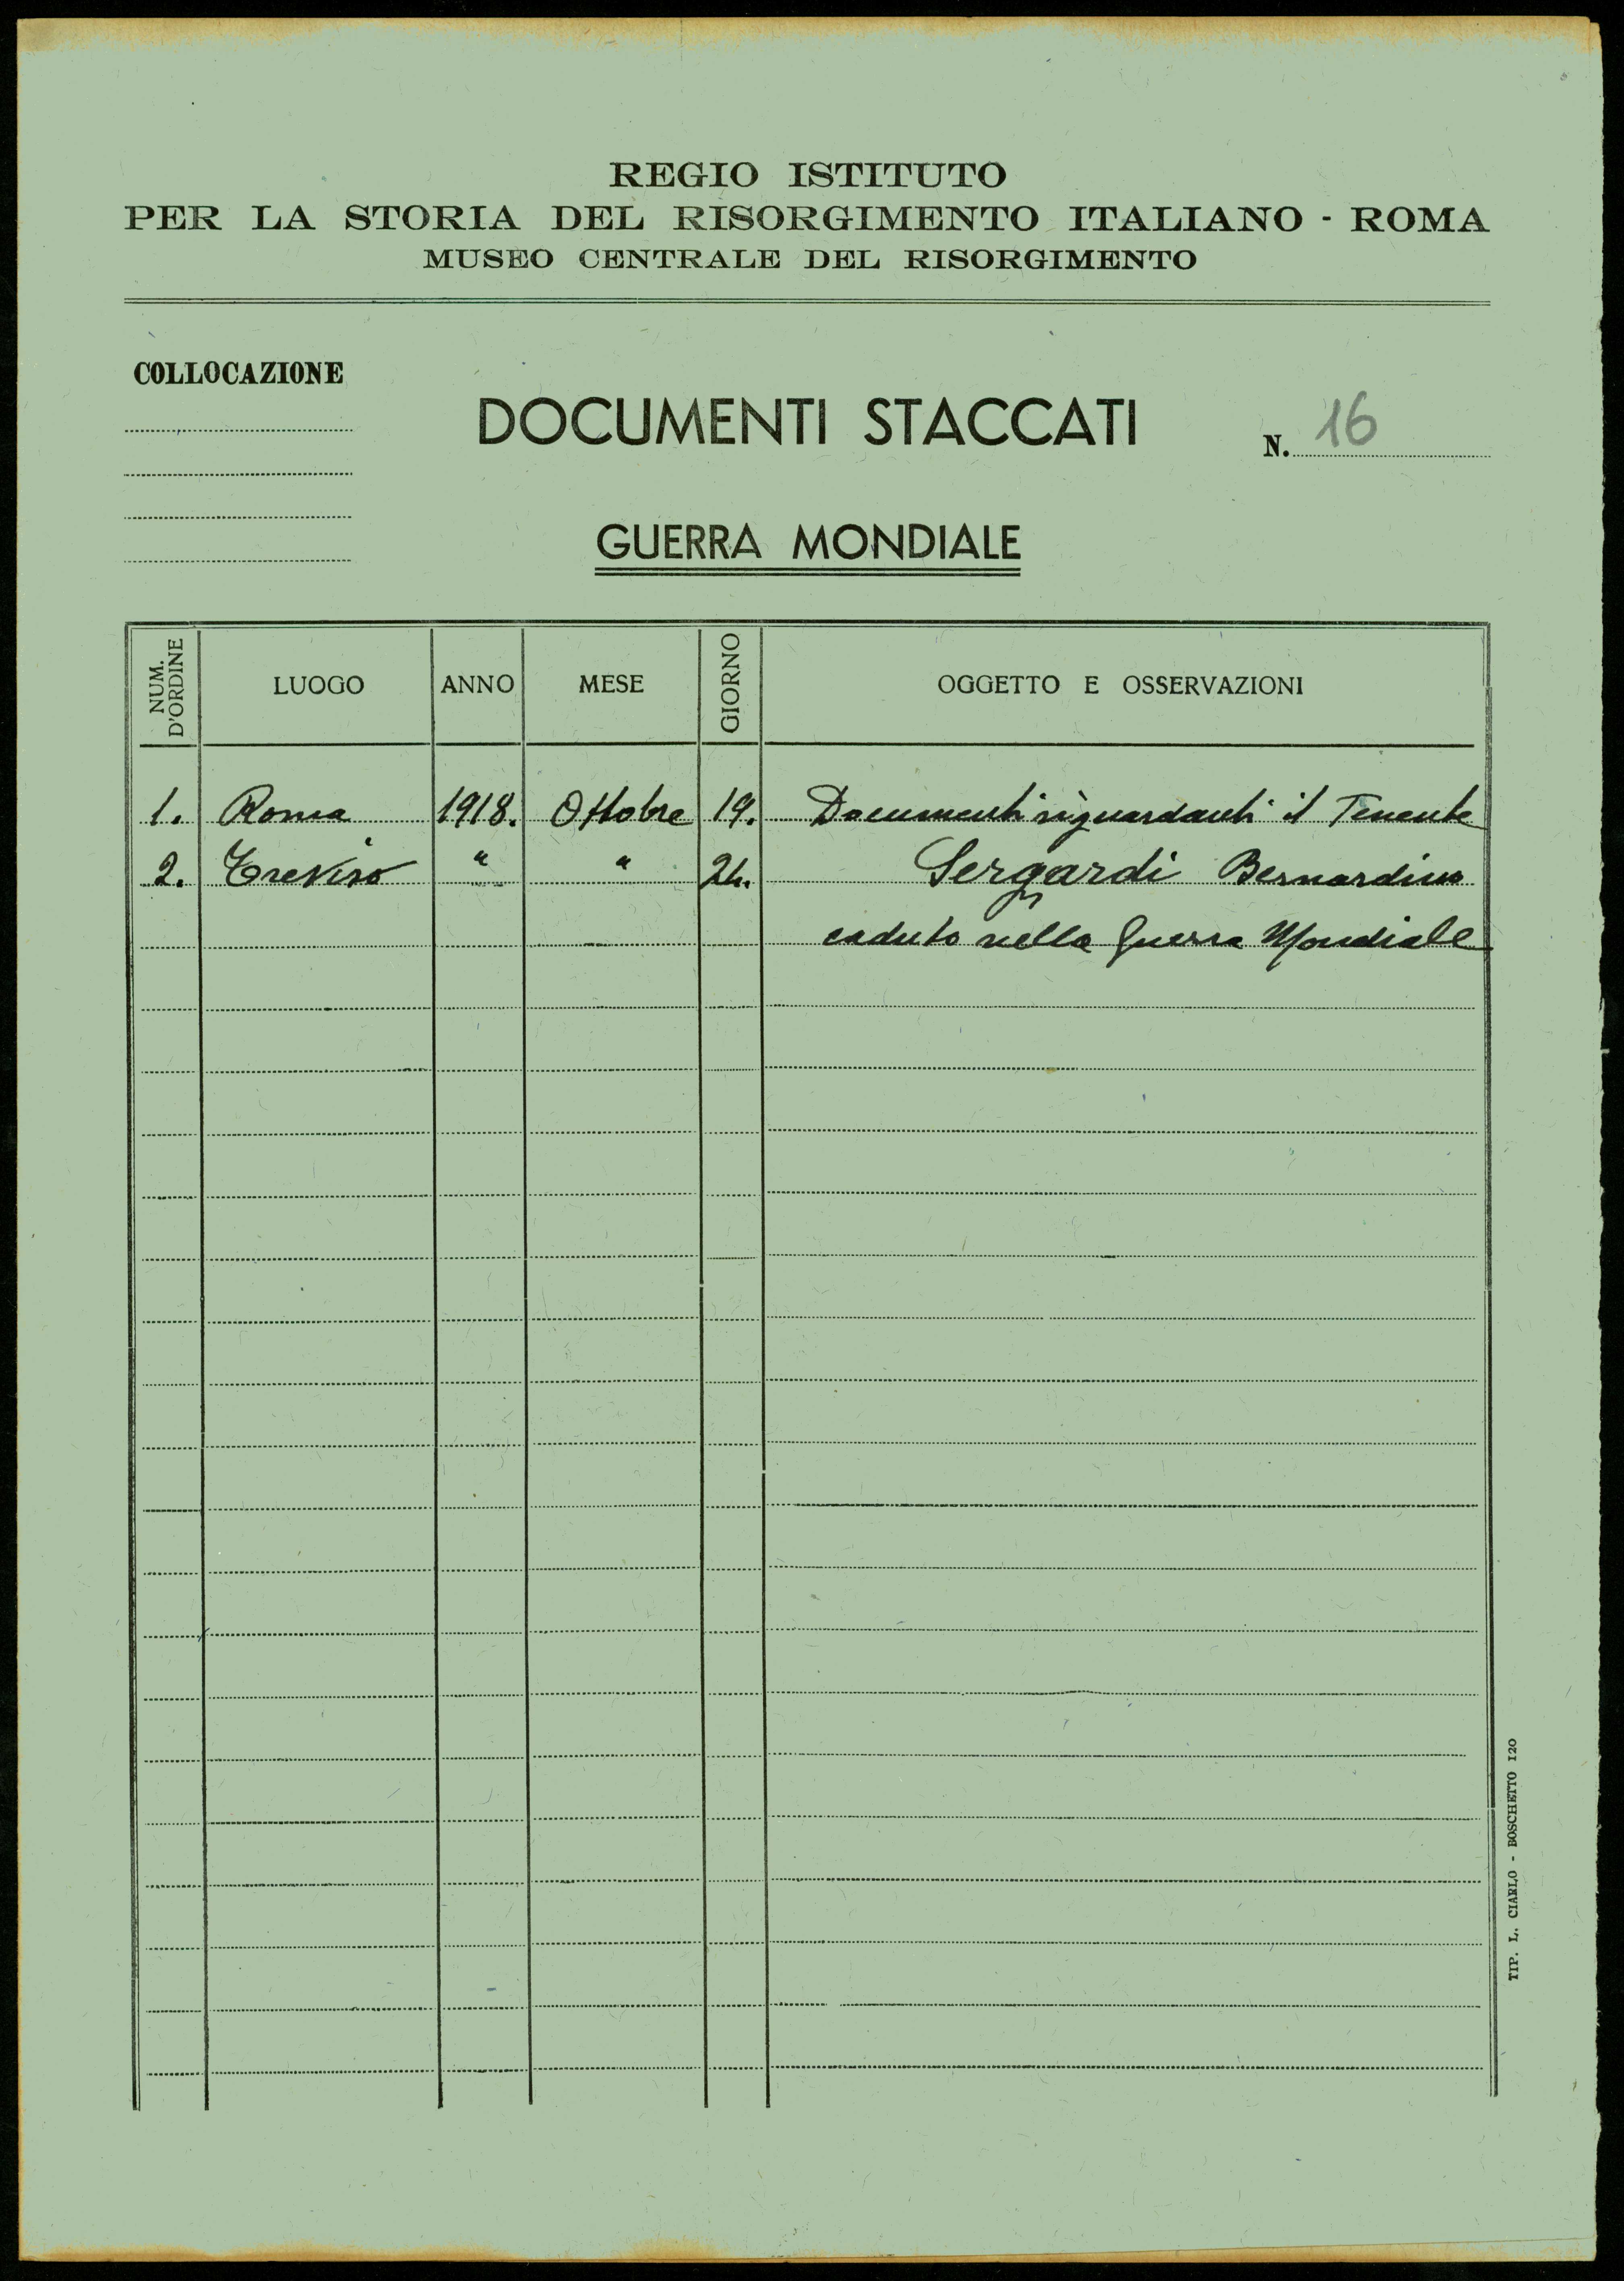 REGIO ISTITUTO
PER LA STORIA DEL RISORGIMENTO ITALIANO - ROMA
MUSEO CENTRALE DEL RISORGIMENTO
COLLOCAZIONE
DOCUMENTI STACCATI
N. 16
GUERRA MONDIALE
NUM. D'ORDINE LUOGO ANNO MESE GIORNO OGGETTO E OSSERVAZIONI
1. Roma 1918. Ottobre 19. Documenti riguardanti il Tenente
2. Treviso " " 24. Sergardi Bernardino
caduto nella Guerra Mondiale
TIP. L. CIARLO - BOSCHETTO 120